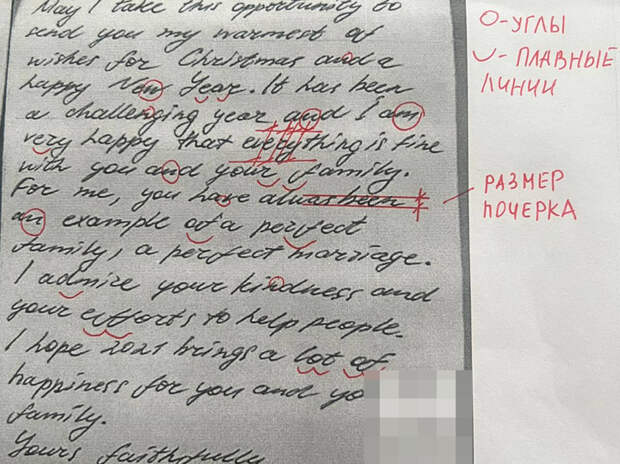 May I take this opportunity to
send you my warmest of
wishes for Christmas and a
happy New Year. It has been
a challenging year and I am
very happy that everything is fine
with you and your family.
For me, you have alwas been
an example of a perfect
family, a perfect marriage.
I admire your kindness and
your efforts to help people.
I hope 2021 brings a lot of
happiness for you and yo
family.
Yours faithfully
О-УГЛЫ
‿-ПЛАВНЫЕ
ЛИНИИ
РАЗМЕР
ПОЧЕРКА